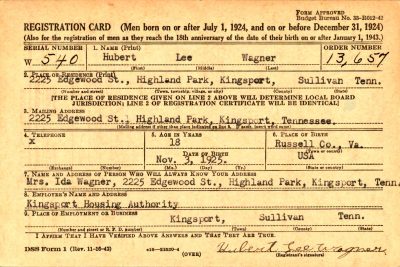 FORM APPROVED
Budget Bureau No. 33-R012-42
REGISTRATION CARD (Men born on or after July 1, 1924, and on or before December 31, 1924)
(Also for the registration of men as they reach the 18th anniversary of the date of their birth on or after January 1, 1943.)
SERIAL NUMBER 1. NAME (Print) ORDER NUMBER
W 540 Hubert Lee Wagner 13,657
(First) (Middle) (Last)
2. PLACE OF RESIDENCE (Print)
2225 Edgewood St., Highland Park, Kingsport, Sullivan Tenn.
(Number and street) (Town, township, village, or city) (County) (State)
[THE PLACE OF RESIDENCE GIVEN ON LINE 2 ABOVE WILL DETERMINE LOCAL BOARD
JURISDICTION; LINE 2 OF REGISTRATION CERTIFICATE WILL BE IDENTICAL]
3. MAILING ADDRESS
2225 Edgewood St., Highland Park, Kingsport, Tennessee.
4. TELEPHONE 5. AGE IN YEARS 6. PLACE OF BIRTH
x 18 Russell Co., Va.
DATE OF BIRTH (Town or county)
Nov. 3, 1925. USA
(Exchange) (Number) (Mo.) (Day) (Yr.) (State or country)
7. NAME AND ADDRESS OF PERSON WHO WILL ALWAYS KNOW YOUR ADDRESS
Mrs. Ida Wagner, 2225 Edgewood St., Highland Park, Kingsport, Tenn.
8. EMPLOYER'S NAME AND ADDRESS
Kingsport Housing Authority
9. PLACE OF EMPLOYMENT OR BUSINESS
Kingsport, Sullivan Tenn.
(Number and street or R. F. D. number) (Town) (County) (State)
I AFFIRM THAT I HAVE VERIFIED ABOVE ANSWERS AND THAT THEY ARE TRUE.
DSS Form 1 (Rev. 11-16-42) (OVER) Hubert Lee Wagner
(Registrant's signature)